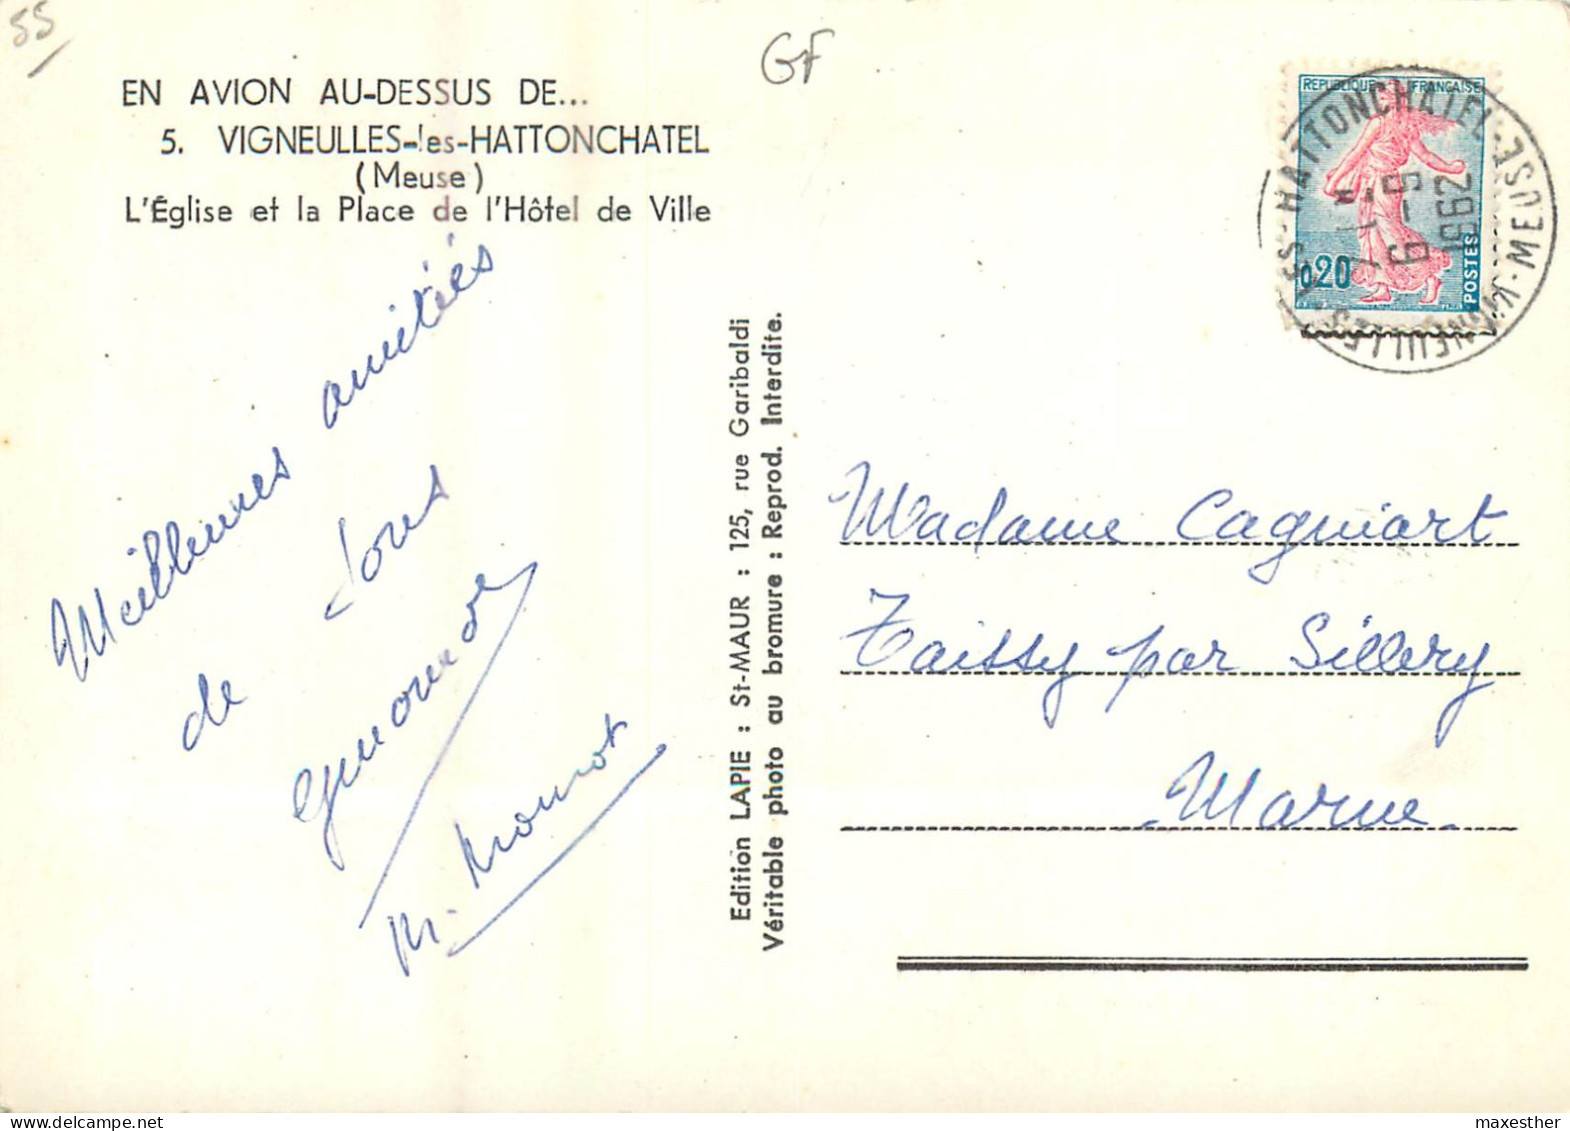 55
GF
EN AVION AU-DESSUS DE...
5. VIGNEULLES-les-HATTONCHATEL
(Meuse)
L'Église et la Place de l'Hôtel de Ville
Meilleures amitiés
de tous
M.
Edition LAPIE : St-MAUR : 125, rue Garibaldi
Véritable photo au bromure : Reprod. Interdite.
REPUBLIQUE FRANÇAISE
0,20
POSTES
VIGNEULLES-LES-HATTONCHATEL · MEUSE ·
5-9
1962
Madame Cagniart
Taissy par Sillery
Marne
maxesther